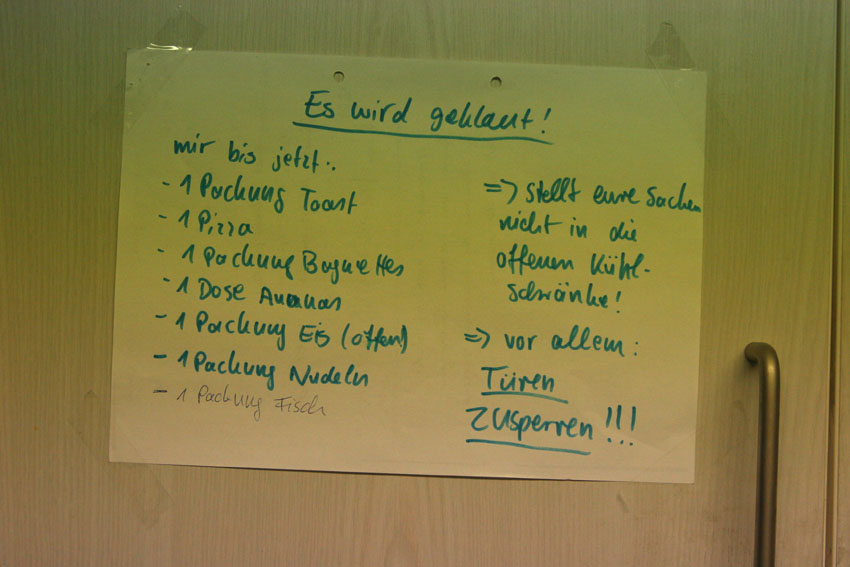 Es wird geklaut!
mir bis jetzt..
- 1 Packung Toast
- 1 Pizza
- 1 Packung Baguettes
- 1 Dose Ananas
- 1 Packung Eis (offen)
- 1 Packung Nudeln
- 1 Packung Fisch
=> stellt eure Sachen
nicht in die
offenen Kühl-
schränke!
=> vor allem:
Türen
zusperren!!!